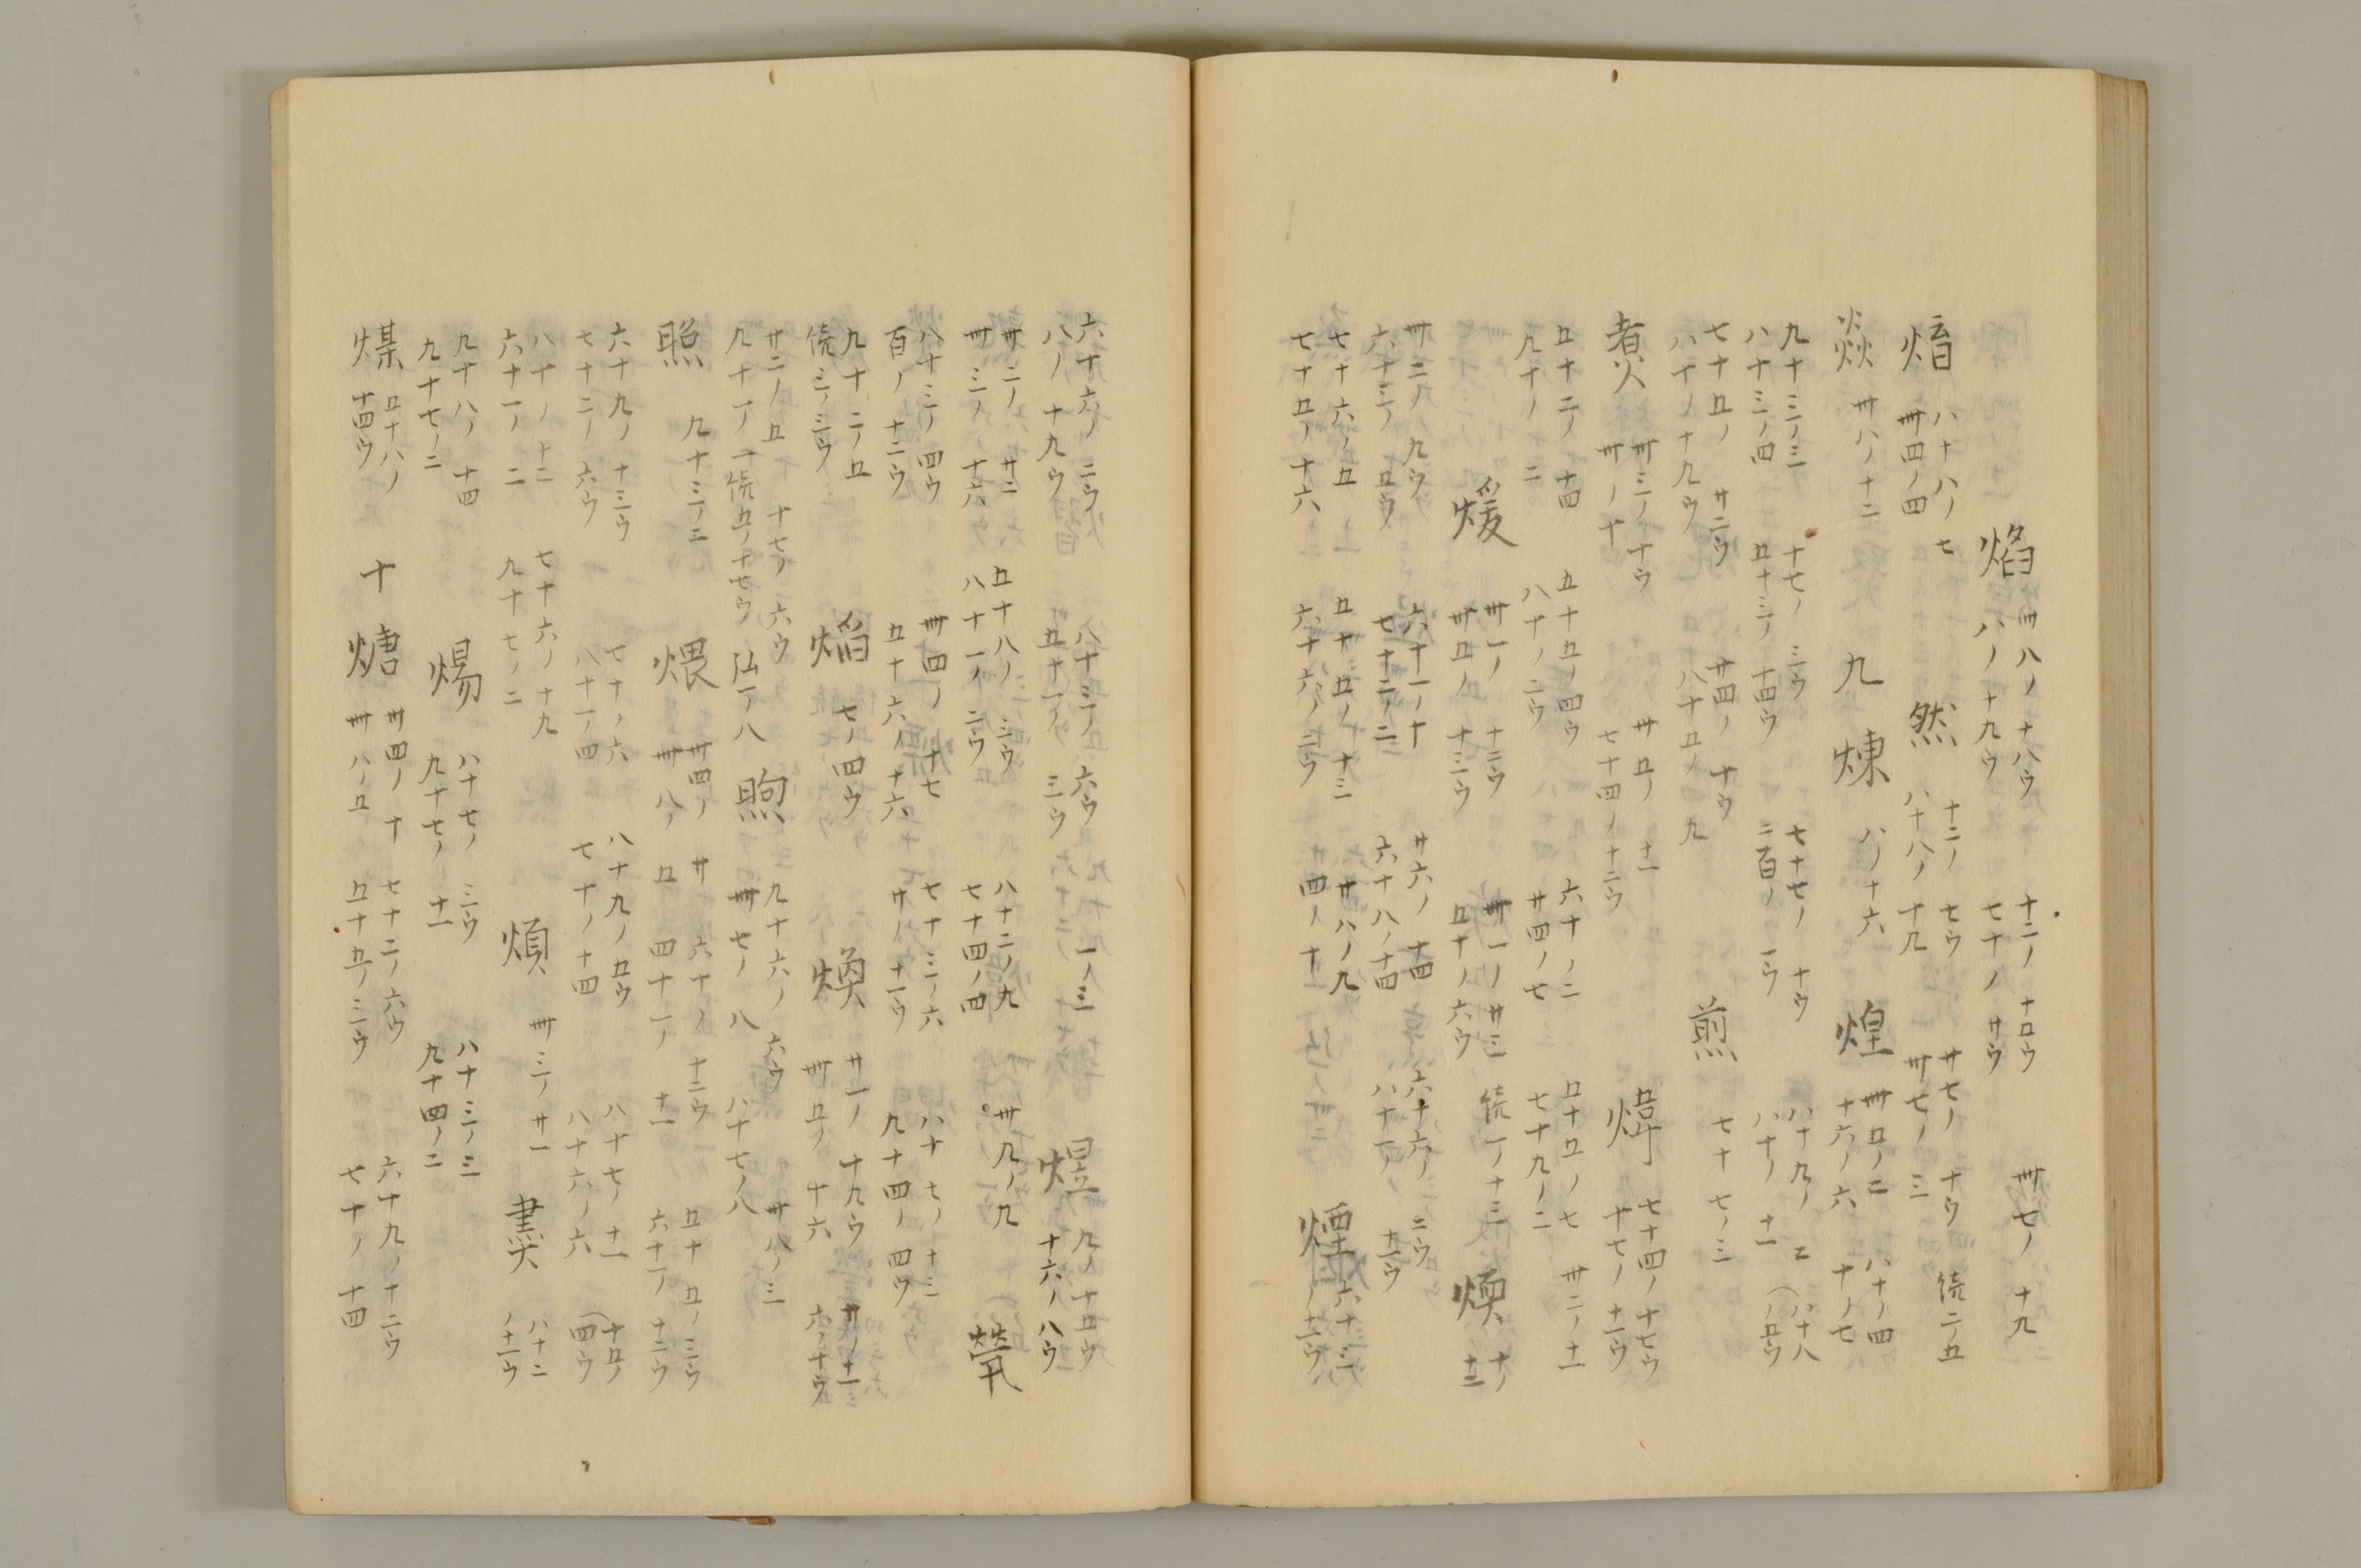 焰 卌八ノ十八ウ 十二ノ 十ロウ 卌七ノ 十九
八ノ十九ウ 七十ノ 廿ウ
焴 八十八ノ七 然 十二ノ 七ウ 廿七ノ 十ウ 続二ノ五
卌四ノ四 八十八ノ十九 卌七ノ三
焱 卌八ノ十二 九 煉 八ノ十六 煌 卌五ノ二 八十ノ四
十六ノ六 十ノ七
九十三ノ三 十七ノ 三ウ 七十七ノ 十ウ 八十九ノ 二 八十八
八十三ノ四 五十三ノ 十四ウ 二百ノ 一ウ 八十ノ 十一 ノ五ウ
七十五ノ 廿二ウ 廿四ノ 十ウ 煎 七十七ノ三
八十ノ十九ウ 八十五ノ 九
煮 卌三ノ十ウ 卅五ノ 十一 煒 七十四ノ十七ウ
卌ノ十 七十四ノ十二ウ 十七ノ 十一ウ
五十二ノ 十四 五十五ノ四ウ 六十ノ二 五十五ノ七 卅二ノ十一
九十ノ 二 八十ノ二ウ 廿四ノ七 七十九ノ二
煖 卅一ノ 十二ウ 卌一ノ廿三 続一ノ十三 煗 十ノ
卌五ノ 十三ウ 五十ノ六ウ 十三
卌二ノ 九ウ 六十一ノ十 廿六ノ 十四 六十六ノ 二ウ
六十三ノ 五ウ 七十二ノ二 六十八ノ十四 八十一ノ 十一ウ
七十六ノ五 五十五ノ 十三 廿八ノ九 煙 六十三
七十五ノ十六 六十六ノ二ウ 廿四ノ十 ノ十一ウ
六十六ノ 二ウ 八十三ノ 六ウ 一ノ三 煜 九ノ十五ウ
八ノ 十九ウ 五十一ノ 三ウ 十六ノ八ウ
卌二ノ 廿二 五十八ノ 三ウ 八十二ノ九 卌九ノ九 煢
卌 三ノ 十六 八十一ノ 二ウ 七十四ノ四
八十三ノ 四ウ 卌四ノ 十七 七十三ノ六 八十七ノ 十三
百ノ 十二ウ 五十六ノ十六 廿ノ 十一ウ 九十四ノ 四ウ
九十二ノ五 焔 七ノ四ウ 煥 廿一ノ 十九ウ 廿ノ十一
続三ノ三ウ 卌五ノ 十六 六ノ十ウ
廿二ノ五 十七ノ 六ウ 煦 九十六ノ 六ウ 卅八ノ三
九十一ノ一 続五ノ十七ウ 弘一ノ八 卌七ノ 八 八十七ノ八
照 九十三ノ二 煨 卅四ノ 廿 六十ノ 十二ウ 五十五ノ三ウ
卌八ノ五 四十一ノ 十一 六十一ノ 十二ウ
六十九ノ 十三ウ 七十ノ六 八十九ノ五ウ 八十七ノ十一 十五ノ
七十二ノ 六ウ 八十一ノ四 七十ノ十四 八十六ノ六 四ウ
八十ノ十二 七十六ノ十九 煩 卌三ノ廿一 㷼 八十二
六十一ノ 二 九十七ノ二 ノ十一ウ
九十八ノ 十四 煬 八十七ノ 三ウ 八十三ノ三
九十七ノ二 九十七ノ 十一 九十四ノ二
煤 五十八ノ 十 煻 卅四ノ十 七十二ノ六ウ 六十九ノ十二ウ
十四ウ 卌八ノ五 五十五ノ三ウ 七十ノ 十四